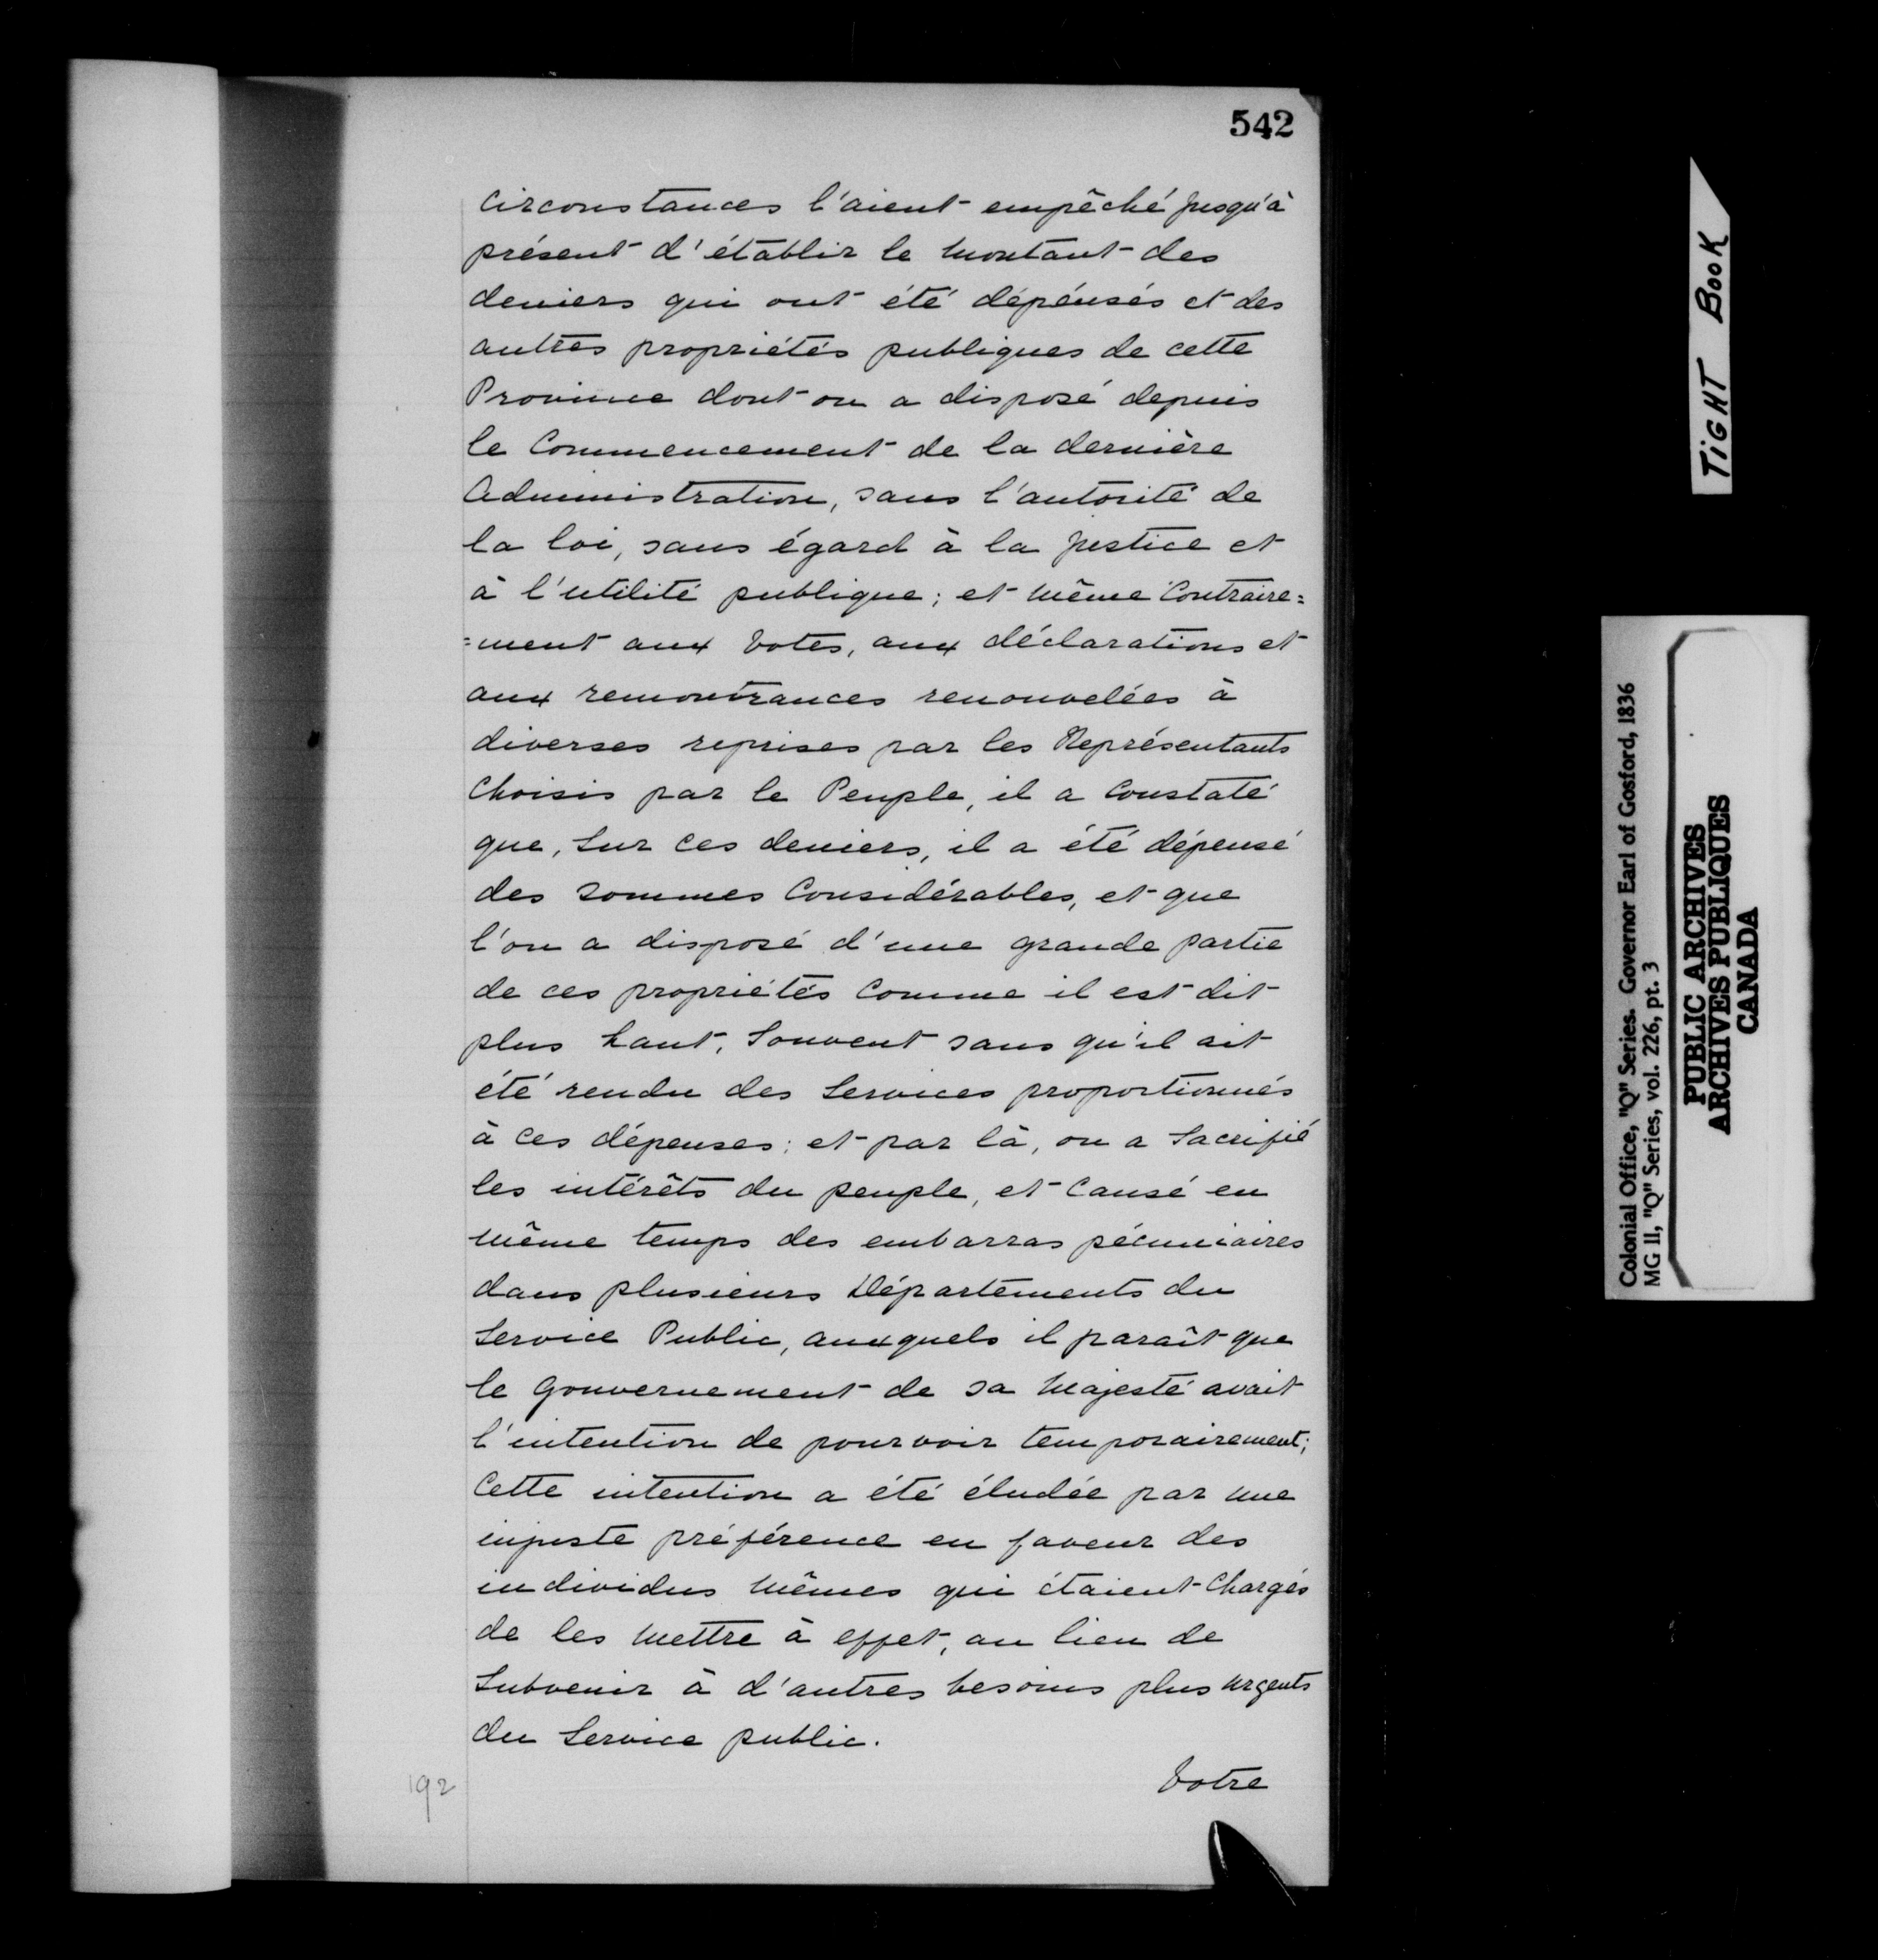 542
Circonstances l'aient empêché jusqu'à
présent d'établir le Montant des
deniers qui ont été dépensés et des
autres propriétés publiques de cette
Province dont on a disposé depuis
le Commencement de la dernière
Administration, sans l'autorité de
la loi, sans égard à la Justice et
à l'utilité publique; et même Contraire=
=ment aux Votes, aux déclarations et
aux remontrances renouvelées à
diverses reprises par les Représentants
Choisis par le Peuple, il a Constaté
que, sur ces deniers, il a été dépensé
des sommes Considérables, et que
l'on a disposé d'une grande partie
de ces propriétés Comme il est dit
plus haut, Souvent sans qu'il ait
été rendu des Services proportionnés
à ces dépenses; et par là, on a Sacrifié
les intérêts du peuple, et Causé en
même temps des embarras pécuniaires
dans plusieurs Départements du
Service Public, auxquels il paraît que
le Gouvernement de sa Majesté avait
l'intention de pourvoir temporairement;
Cette intention a été éludée par une
injuste préférence en faveur des
individus mêmes qui étaient Chargés
de les Mettre à effet, au lieu de
Subvenir à d'autres besoins plus urgents
du Service public.
Votre
192
TIGHT BOOK
Colonial Office, "Q" Series. Governor Earl of Gosford, 1836
MG 11, "Q" Series, vol. 226, pt. 3
PUBLIC ARCHIVES
ARCHIVES PUBLIQUES
CANADA